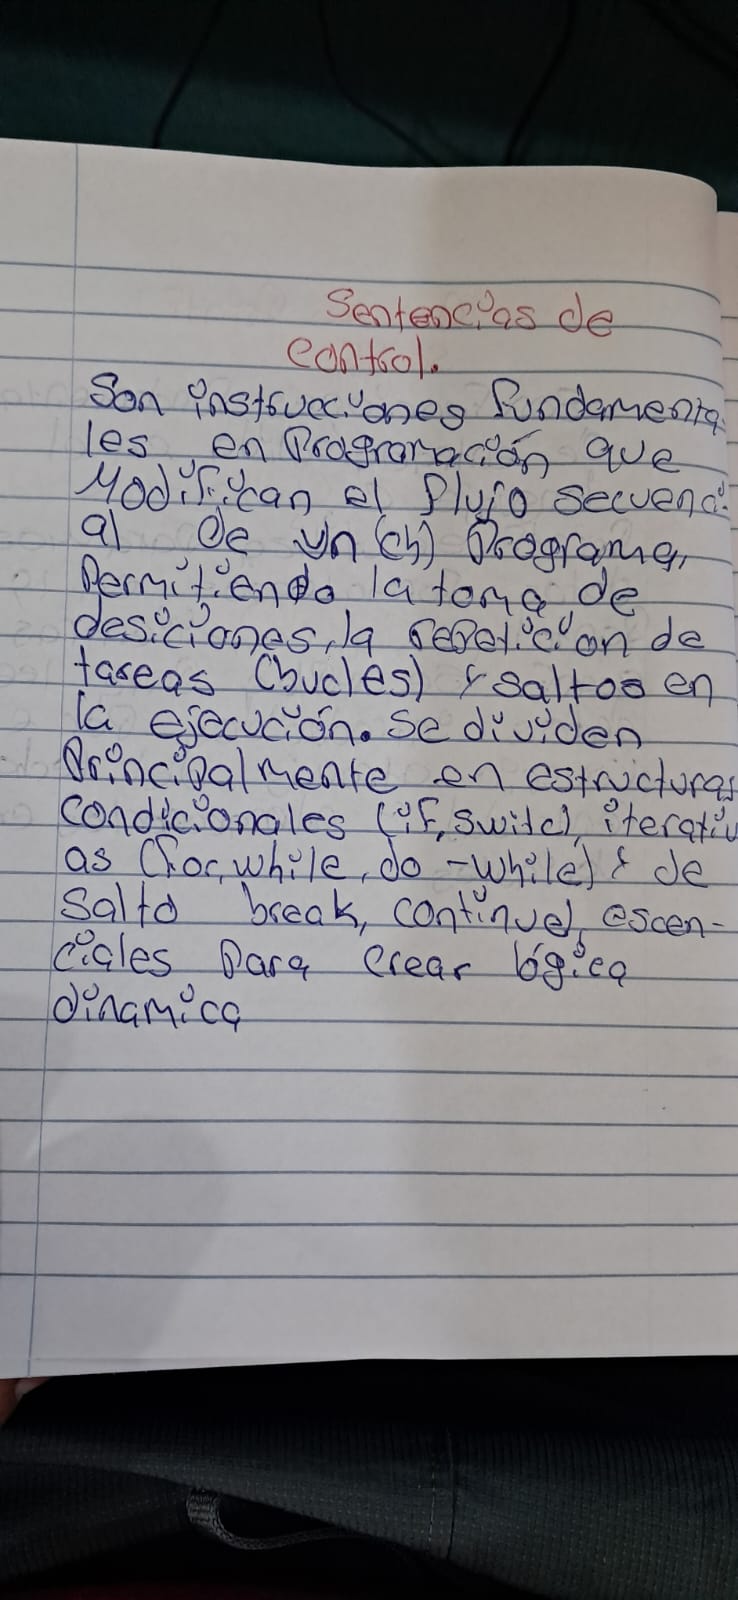 Sentencias de
control.
Son instrucciones fundamenta
les en Programación que
Modifican el flujo secuenci
al de un (ch) Programa,
Permitiendo la toma de
desiciones, la repetición de
tareas (bucles) y saltos en
la ejecución. Se dividen
Principalmente en estructuras
condicionales (if, switc), iterativ
as (for, while, do -while) y de
Salto break, continue), escen-
ciales Para crear lógica
dinamica